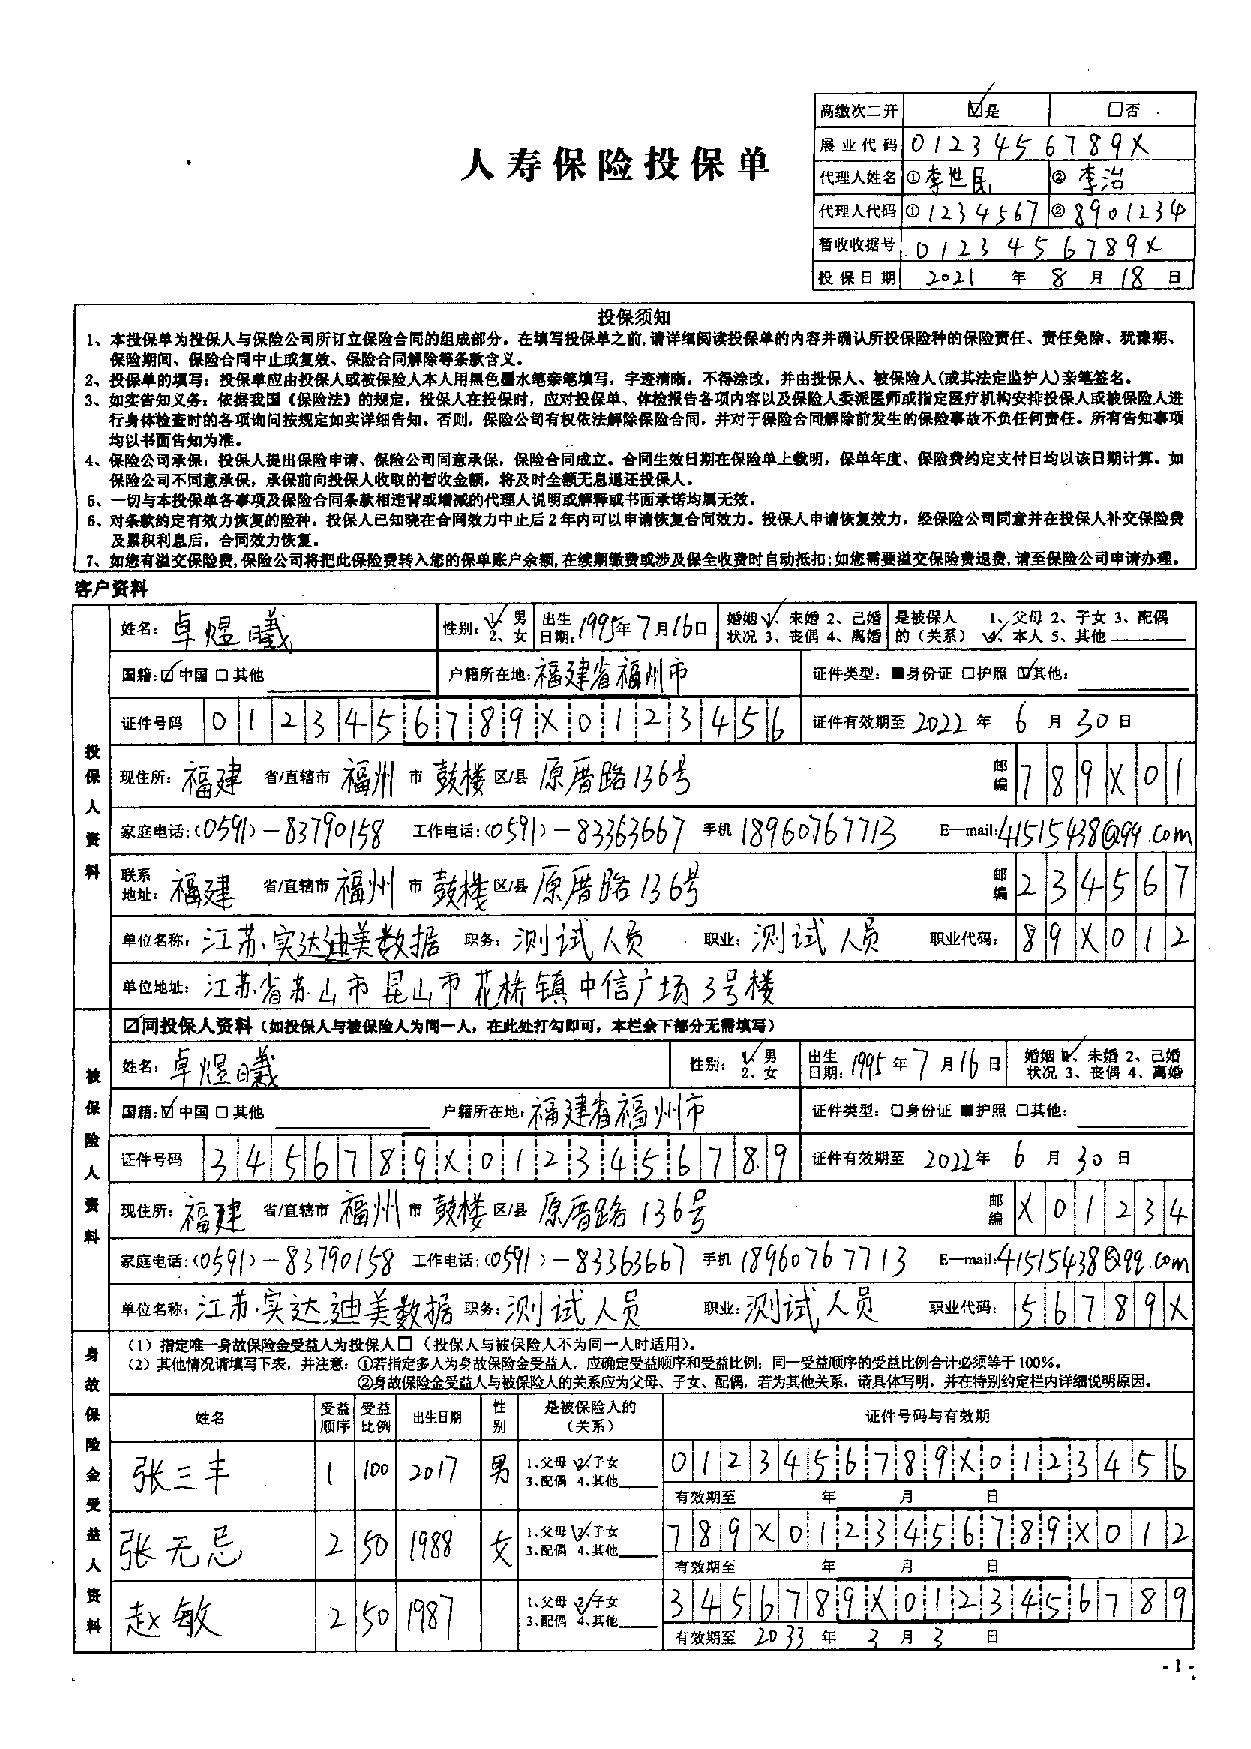 高缴次二开 ☑是 □否
展业代码 0123456789X
人寿保险投保单
代理人姓名 ①李世民 ②李治
代理人代码 ①1234567 ②8901234
暂收收据号 0123456789X
投保日期 2021 年 8 月 18 日
投保须知
1、本投保单为投保人与保险公司所订立保险合同的组成部分。在填写投保单之前,请详细阅读投保单的内容并确认所投保险种的保险责任、责任免除、犹豫期、
保险期间、保险合同中止或复效、保险合同解除等条款含义。
2、投保单的填写：投保单应由投保人或被保险人本人用黑色墨水笔亲笔填写，字迹清晰，不得涂改，并由投保人、被保险人(或其法定监护人)亲笔签名。
3、如实告知义务：依据我国《保险法》的规定，投保人在投保时，应对投保单、体检报告各项内容以及保险人委派医师或指定医疗机构安排投保人或被保险人进
行身体检查时的各项询问按规定如实详细告知。否则，保险公司有权依法解除保险合同，并对于保险合同解除前发生的保险事故不负任何责任。所有告知事项
均以书面告知为准。
4、保险公司承保：投保人提出保险申请、保险公司同意承保，保险合同成立。合同生效日期在保险单上载明，保单年度、保险费约定支付日均以该日期计算。如
保险公司不同意承保，承保前向投保人收取的暂收金额，将及时全额无息退还投保人。
5、一切与本投保单各事项及保险合同条款相违背或增减的代理人说明或解释或书面承诺均属无效。
6、对条款约定有效力恢复的险种，投保人已知晓在合同效力中止后2年内可以申请恢复合同效力。投保人申请恢复效力，经保险公司同意并在投保人补交保险费
及累积利息后，合同效力恢复。
7、如您有溢交保险费,保险公司将把此保险费转入您的保单账户余额,在续期缴费或涉及保全收费时自动抵扣;如您需要溢交保险费退费,请至保险公司申请办理。
客户资料
投保人资料
姓名：卓煜曦 性别：1、男 2、女 出生日期：1995年7月16日 婚姻状况 1、未婚 2、已婚 3、丧偶 4、离婚 是被保人的（关系） 1、父母 2、子女 3、配偶 4、本人 5、其他
国籍：☑中国 □其他 户籍所在地：福建省福州市 证件类型：■身份证 □护照 ☑其他：
证件号码 0123456789X0123456 证件有效期至 2022 年 6 月 30 日
现住所：福建 省/直辖市 福州 市 鼓楼 区/县 原厝路136号 邮编 789X01
家庭电话：(0591)-83790158 工作电话：(0591)-83363667 手机 18960767713 E-mail:41515438@qq.com
联系地址：福建 省/直辖市 福州 市 鼓楼 区/县 原厝路136号 邮编 234567
单位名称：江苏实达迪美数据 职务：测试人员 职业：测试人员 职业代码：89X012
单位地址：江苏省苏山市昆山市花桥镇中信广场3号楼
被保险人资料
☑同投保人资料（如投保人与被保险人为同一人，在此处打勾即可，本栏余下部分无需填写）
姓名：卓煜曦 性别：1、男 2、女 出生日期：1995年7月16日 婚姻状况 1、未婚 2、已婚 3、丧偶 4、离婚
国籍：☑中国 □其他 户籍所在地：福建省福州市 证件类型：□身份证 ■护照 □其他：
证件号码 3456789X0123456789 证件有效期至 2022年 6 月 30 日
现住所：福建 省/直辖市 福州 市 鼓楼 区/县 原厝路136号 邮编 X01234
家庭电话：(0591)-83790158 工作电话：(0591)-83363667 手机 18960767713 E-mail:41515438@qq.com
单位名称：江苏实达迪美数据 职务：测试人员 职业：测试人员 职业代码：56789X
身故保险金受益人资料
（1）指定唯一身故保险金受益人为投保人□（投保人与被保险人不为同一人时适用）。
（2）其他情况请填写下表，并注意：①若指定多人为身故保险金受益人，应确定受益顺序和受益比例；同一受益顺序的受益比例合计必须等于100%。
②身故保险金受益人与被保险人的关系应为父母、子女、配偶，若为其他关系，请具体写明，并在特别约定栏内详细说明原因。
姓名 受益顺序 受益比例 出生日期 性别 是被保险人的（关系） 证件号码与有效期
张三丰 1 100 2017 男 1.父母 2.子女 3.配偶 4.其他 0123456789X0123456
有效期至 年 月 日
张无忌 2 50 1988 女 1.父母 2.子女 3.配偶 4.其他 789X0123456789X012
有效期至 年 月 日
赵敏 2 50 1987 1.父母 2.子女 3.配偶 4.其他 3456789X0123456789
有效期至 2033 年 3 月 3 日
- 1 -